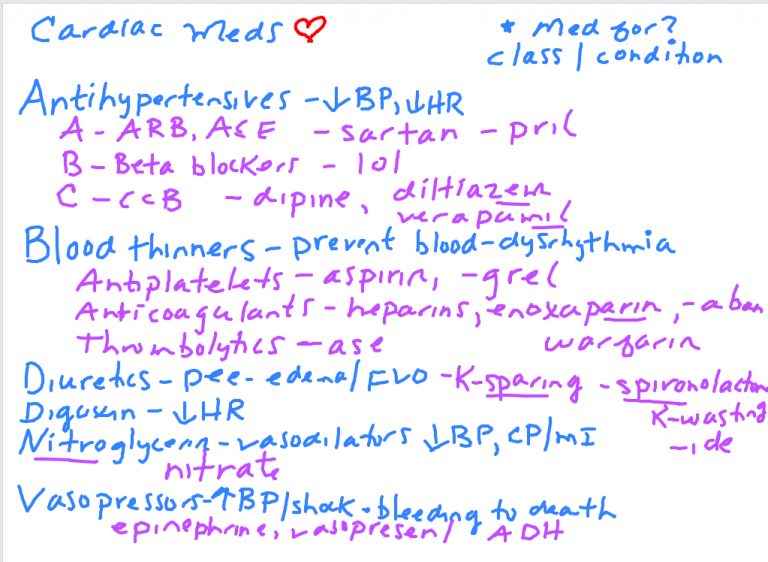 Cardiac Meds
* Med for?
class / condition
Antihypertensives - ↓ BP, ↓ HR
A - ARB, ACE - sartan - pril
B - Beta blockers - lol
C - CCB - dipine, diltiazem
verapamil
Blood thinners - prevent blood - dysrhythmia
Antiplatelets - aspirin, - grel
Anticoagulants - heparins, enoxaparin, - aban
warfarin
Thrombolytics - ase
Diuretics - pee - edema / FVO - K-sparing - spironolacton
K-wasting
- ide
Digoxin - ↓ HR
Nitroglycerin - vasodilators ↓ BP, CP/MI
nitrate
Vasopressors - ↑ BP/shock - bleeding to death
epinephrine, vasopresen / ADH